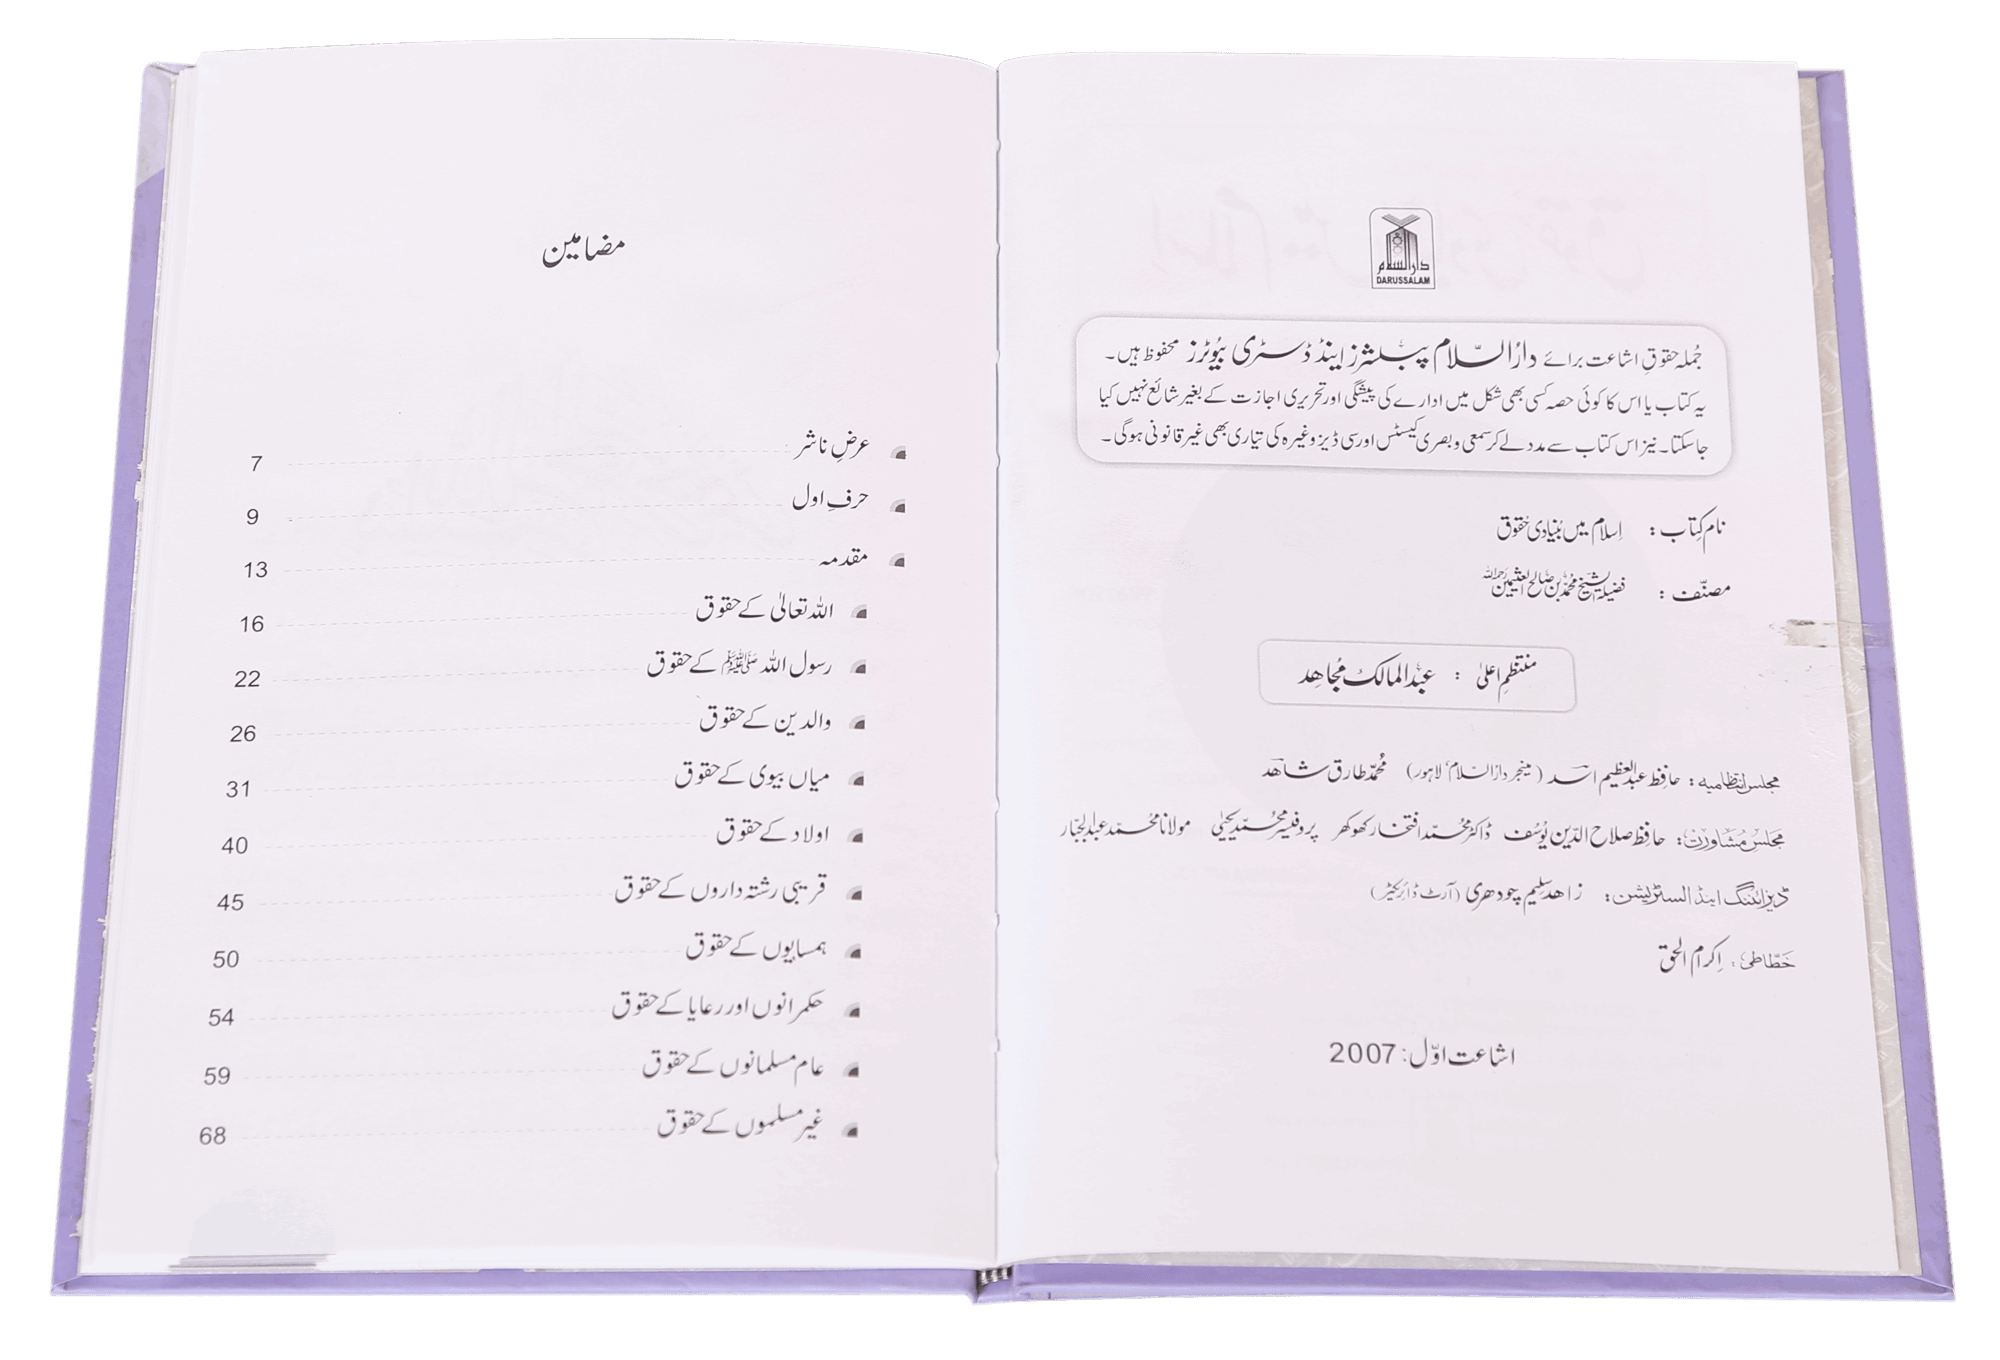 دارالسلام
DARUSSALAM
جُملہ حقوقِ اشاعت برائے دارُالسّلام پبلشرز اینڈ ڈسٹری بیُوٹرز محفوظ ہیں۔
یہ کتاب یا اس کا کوئی حصہ کسی بھی شکل میں ادارے کی پیشگی اور تحریری اجازت کے بغیر شائع نہیں کیا
جاسکتا۔ نیز اس کتاب سے مدد لے کر سمعی و بصری کیسٹس اور سی ڈیز وغیرہ کی تیاری بھی غیر قانونی ہوگی۔
نام کِتاب : اِسلام میں بُنیادی حُقوق
مصنّف : فضیلۃ الشیخ محمّد بن صالح العثیمین رحمہ اللہ
منتظمِ اعلیٰ : عبدُالمالک مُجاھِد
مجلس انتظامیہ : حافظ عبدالعظیم اسد (مینجر دارُالسلام، لاہور) مُحمّد طارق شاھد
مجلس مُشاورت : حافِظ صلاح الدّین یُوسُف ڈاکٹر محمّد افتخار کھوکھر پروفیسر محمّد یحییٰ مولانا محمّد عبدالجبّار
ڈیزائننگ اینڈ السٹریشن : زاھد سلِیم چودھری (آرٹ ڈائریکٹر)
خطّاطی : اِکرام الحق
اشاعت اوّل : 2007
مضامین
عرضِ ناشر 7
حرفِ اول 9
مقدمہ 13
اللہ تعالیٰ کے حقوق 16
رسول اللہ ﷺ کے حقوق 22
والدین کے حقوق 26
میاں بیوی کے حقوق 31
اولاد کے حقوق 40
قریبی رشتہ داروں کے حقوق 45
ہمسایوں کے حقوق 50
حکمرانوں اور رعایا کے حقوق 54
عام مسلمانوں کے حقوق 59
غیر مسلموں کے حقوق 68